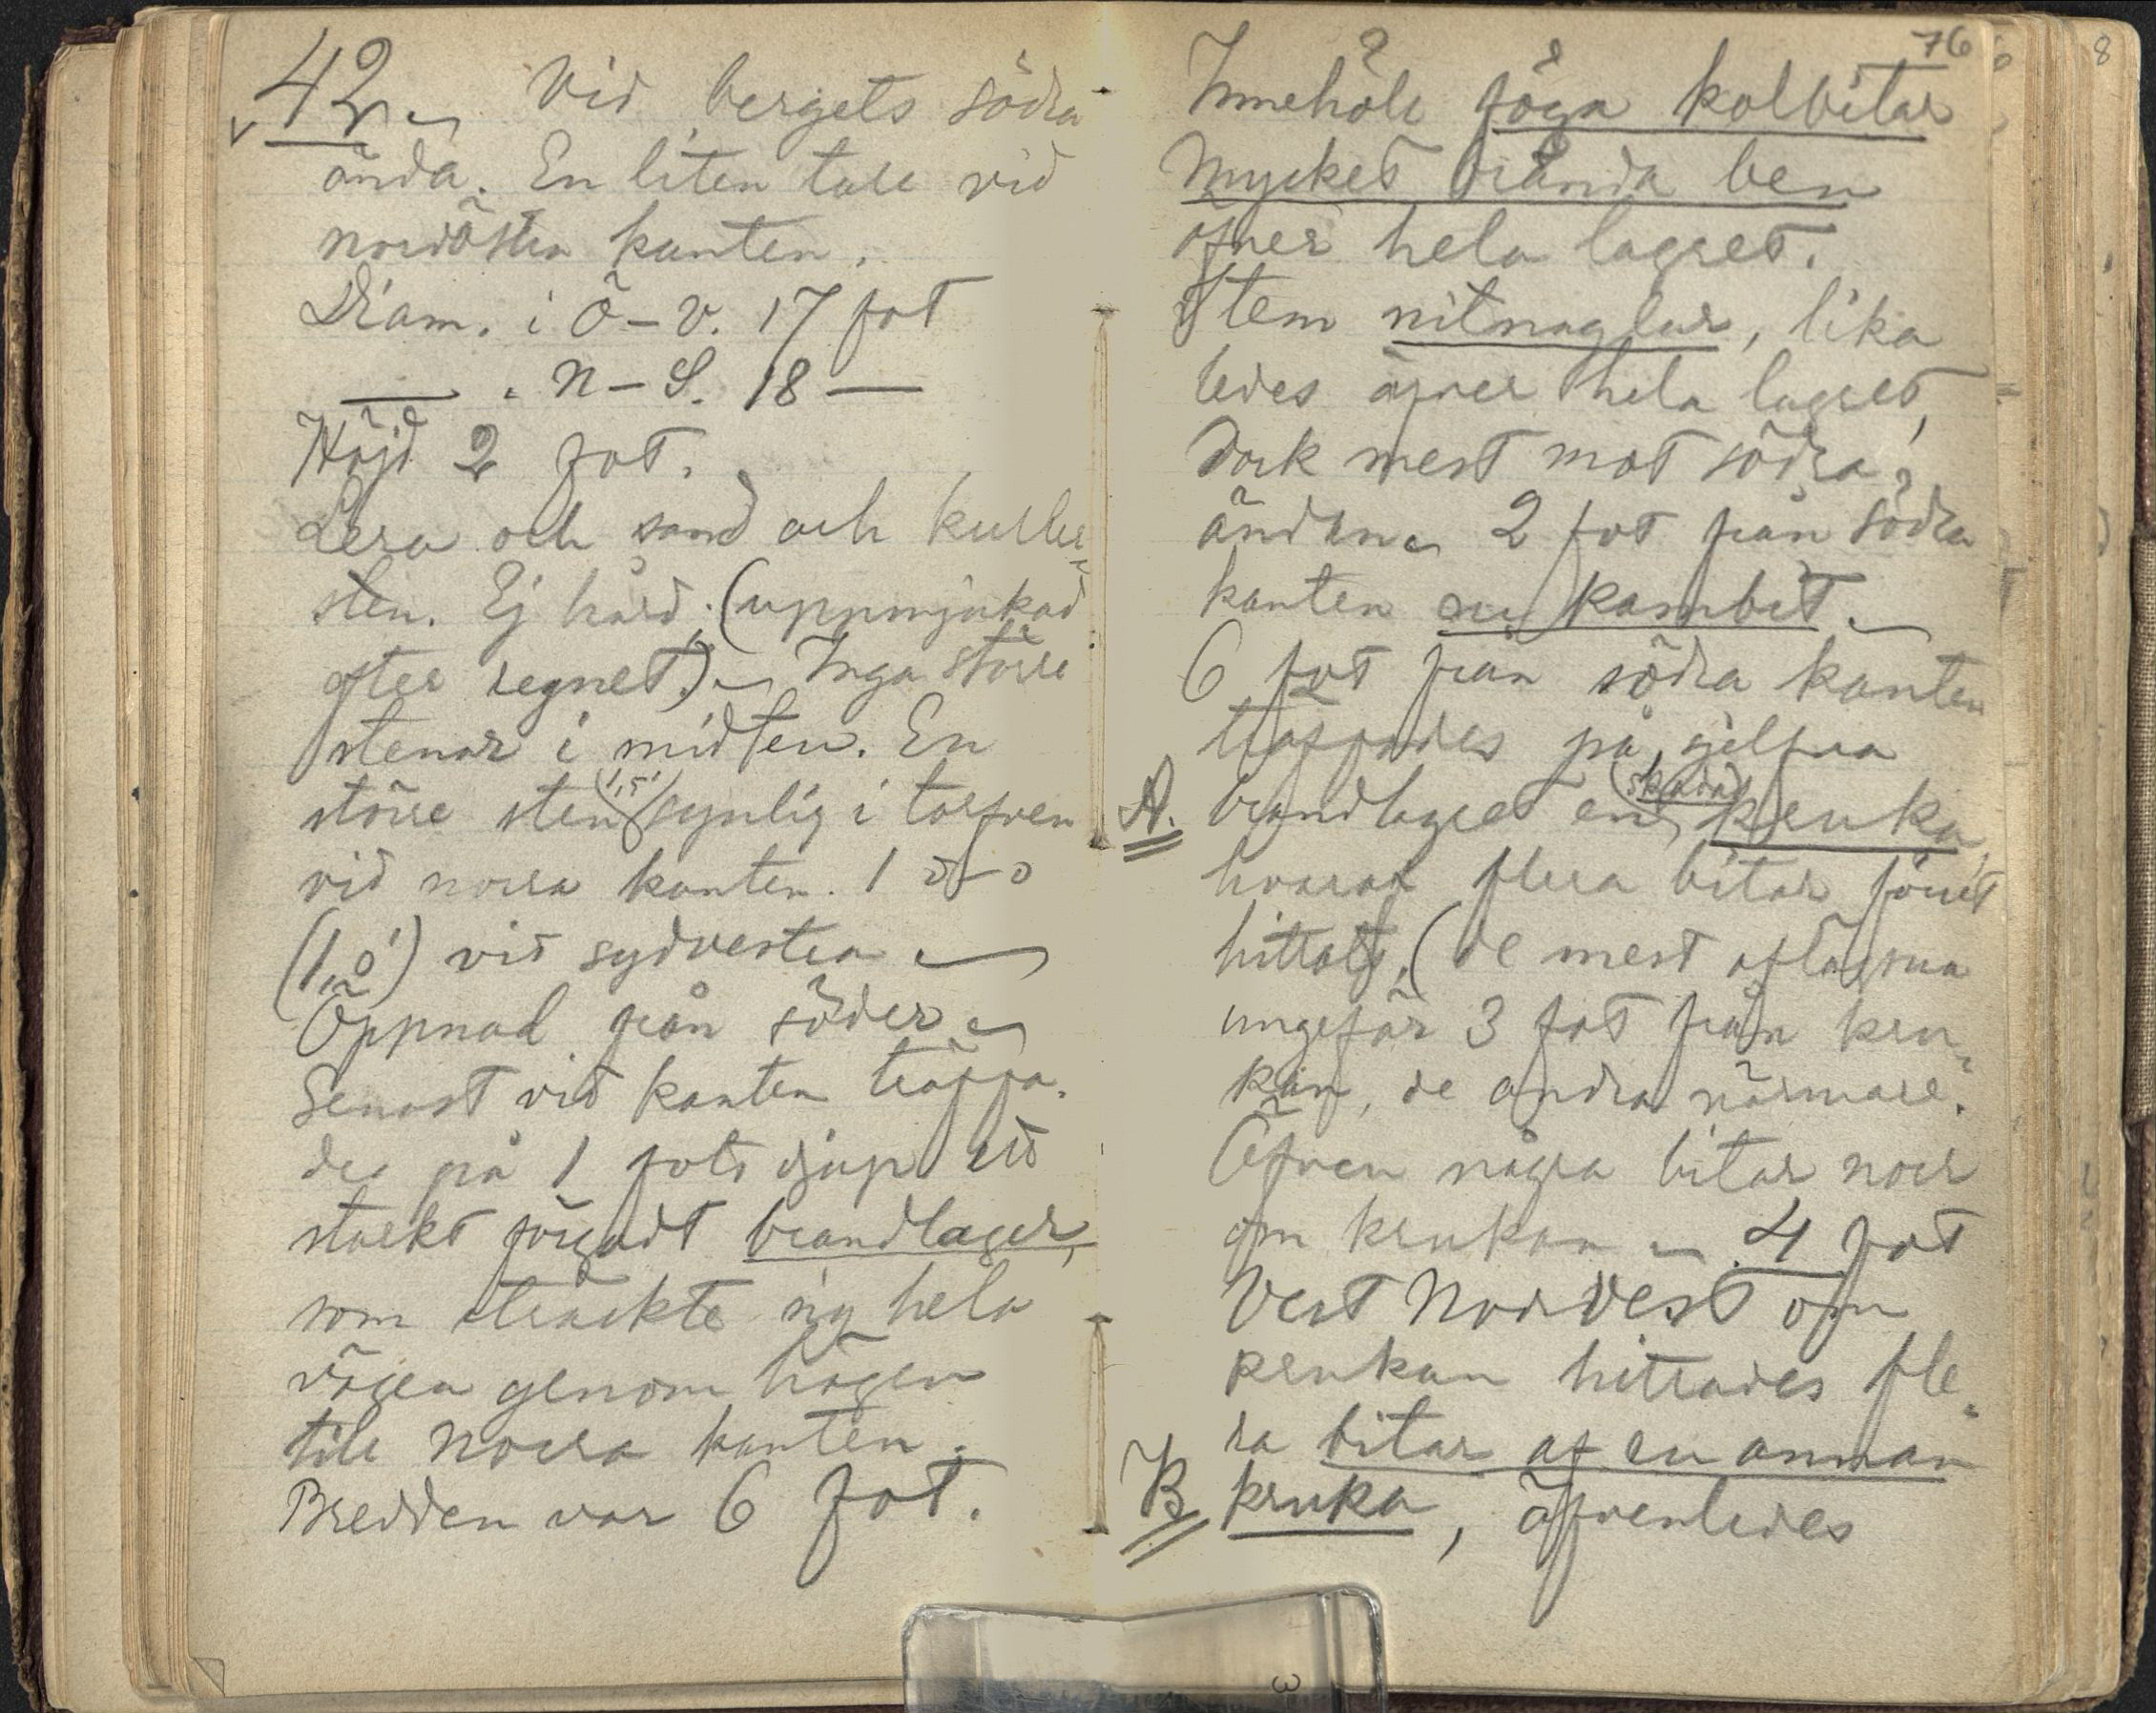 42. Vid bergets södra
ända. En liten tall vid
nordöstra kanten.
Diam. i Ö–V. 17 fot
— " N–S. 18 —
Höjd 2 fot.
Lera och sand och kuller-
sten. Ej hård. (uppmjukad
efter regnet.) – Inga större
stenar i midten. En
större sten (1,5') synlig i torfven
vid norra kanten. 1 d–o
(1,0') vid sydvestra –
Öppnad från söder –
Genast vid kanten träffa-
des på 1 fots djup ett
starkt färgadt brandlager,
som sträckte sig hela
vägen genom högen
till norra kanten.
Bredden var 6 fot.
76
Innehöll föga kolbitar
Mycket brända ben
öfver hela lagret.
Item nitnaglar, lika
ledes öfver hela lagret,
dock mest mot södra
ändan. 2 fot från södra
kanten en kambit. –
6 fot från södra kanten
träffades på sjelfva
A. brandlagret en (skadad) kruka,
hvaraf flera bitar förut
hittats, (de mest aflägsna
ungefär 3 fot från kru-
kan, de andra närmare.
Äfven några bitar norr
om krukan – 4 fot
Vest Nordvest om
krukan hittades fle-
ra bitar af en annan
B kruka, äfvenledes
8